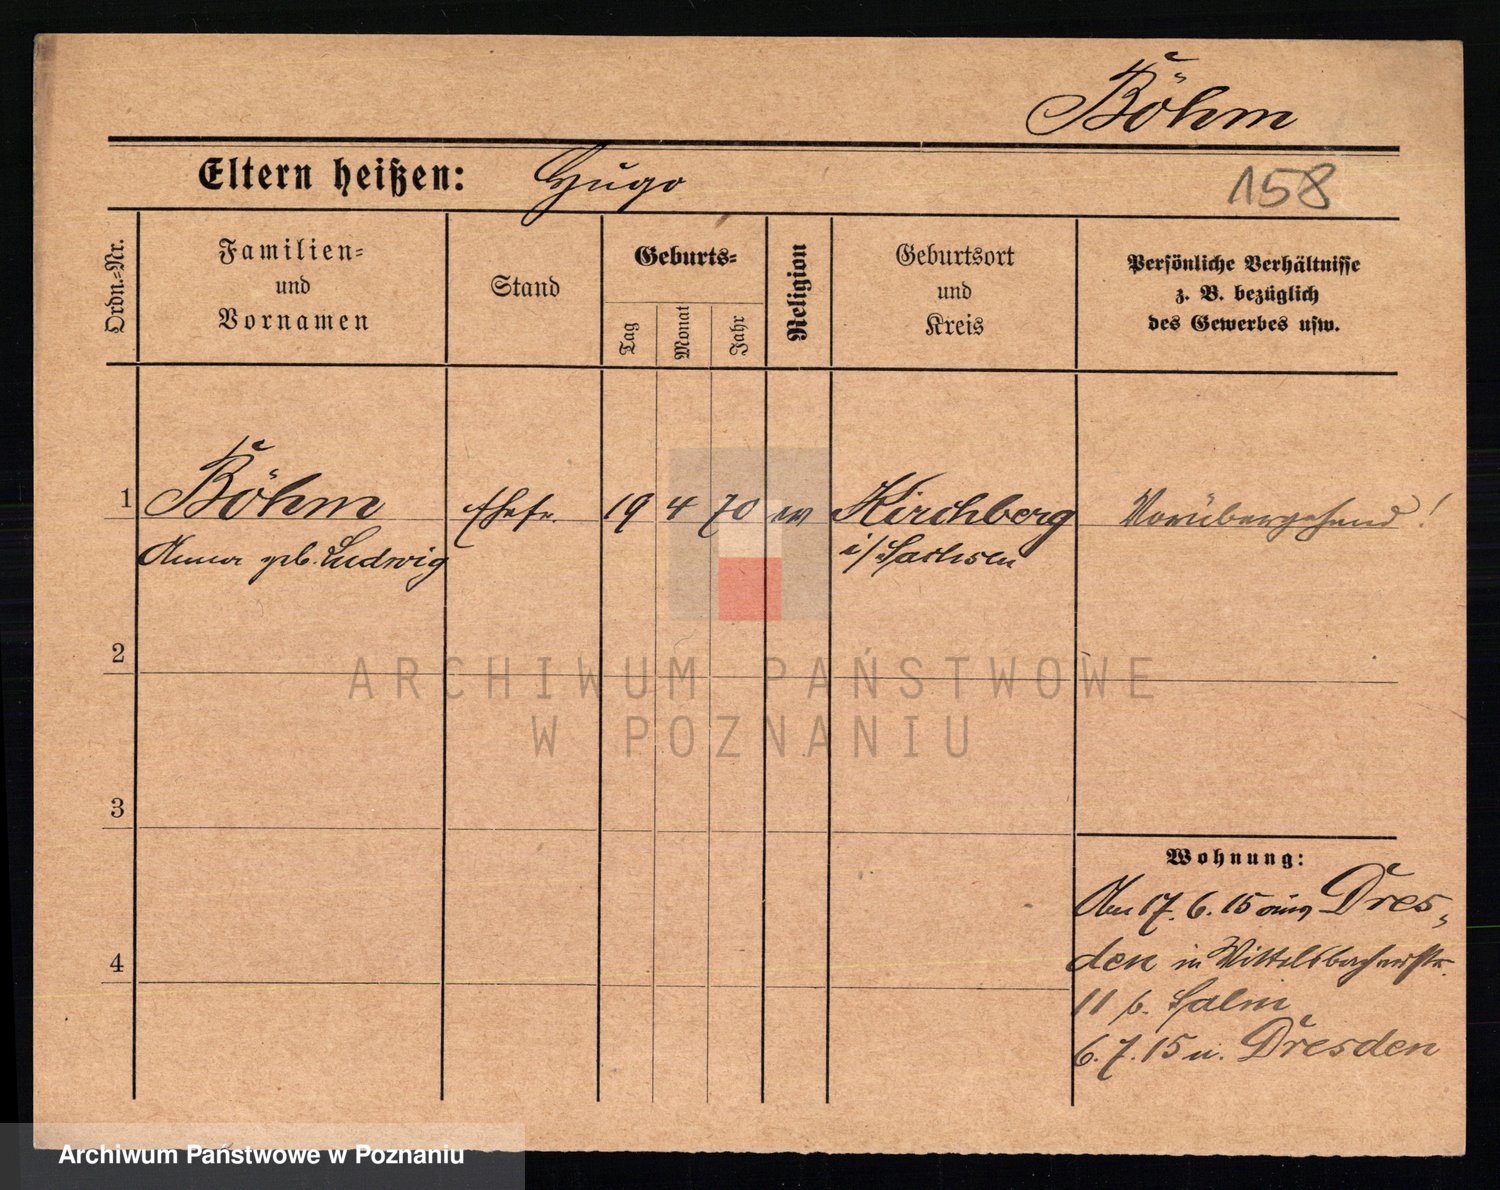 Böhm
Eltern heißen: Hugo
158
Ordn.-Nr.
Familien-
und
Vornamen
Stand
Geburts-
Tag
Monat
Jahr
Religion
Geburtsort
und
Kreis
Persönliche Verhältnisse
z. B. bezüglich
des Gewerbes usw.
1 Böhm Ehefr. 19 4 70 ev Kirchberg Vorübergehend!
Anna geb. Ludwig i/Sachsen
2
ARCHIWUM PAŃSTWOWE
W POZNANIU
3
Wohnung:
Am 17. 6. 15 aus Dres-
4
den in Wittelsbacherstr.
11 b. Salm
6. 7. 15 n. Dresden
Archiwum Państwowe w Poznaniu